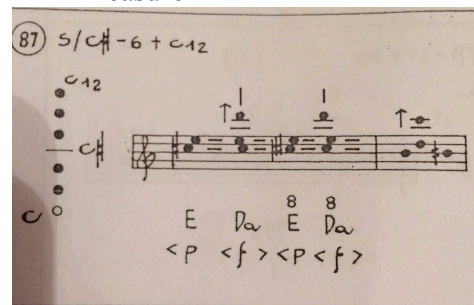 87 S/C#-6 + C12
C12
C#
C
8 8
E Da E Da
<P <f> <P <f>